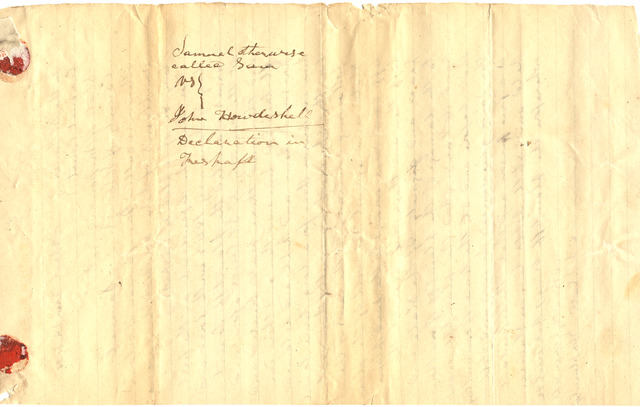 Samuel otherwise
called Sam
vs
John Howdeshell
Declaration in
Trespass